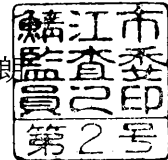 朗
鯖江市
監査委
員之印
第2号